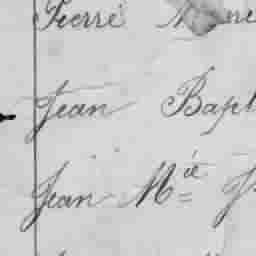 Pierre
Jean Bapt
Jean M.ie